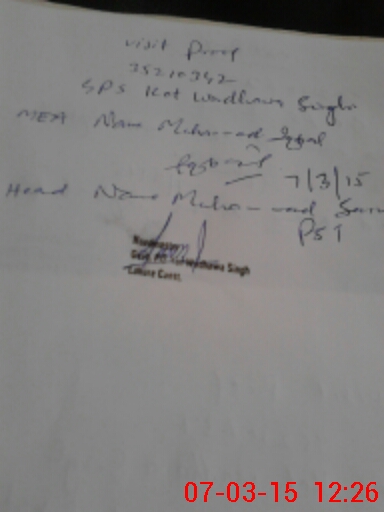 visit Proof
35210342
GPS Kot Wadhawa Singh
MEA Name Muhammad Iqbal
7/3/15
Head Name Muhammad
PST
Wadhawa Singh
Lahore Cantt.
07-03-15 12:26